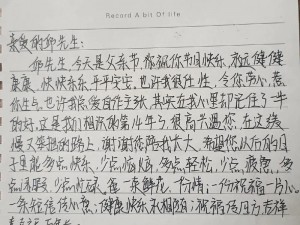 Record A bit Of life
亲爱的邱先生:
邱先生,今天是父亲节,祝你节日快乐,永远健健
康康,快快乐乐,平平安安,也许我很任性,令你伤心,惹
你生气,也许我爱自作主张,其实在我心里却记住了一
的好,这是我们相识的第14年了,很高兴遇您,在这缘
慢又坚挺的路上,谢谢
希望您从以后的日
子里能多点快乐,少点烦恼,多点轻松,少点疲惫,多
少点
一束鲜花,一份情,一份祝福一片心
一条短信传心意:健康快乐不相颂;祝福传四方吉祥